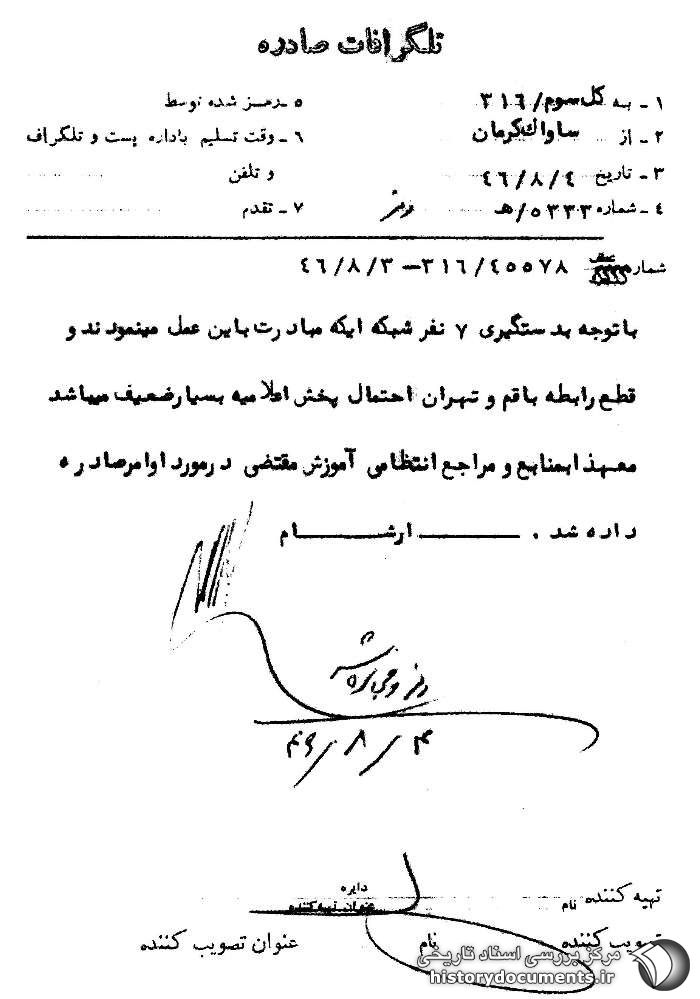 تلگرافات صادره
۱ - به کل سوم/ ۳۱۶
۵ - رمز شده توسط
۲ - از ساواک کرمان
۶ - وقت تسلیم باداره پست و تلگراف
۳ - تاریخ ۴۶/۸/۴
و تلفن
۴ - شماره ۵۳۳۳/هـ رمز
۷ - تقدم
شماره ۳۱۶/۴۵۵۷۸ – ۴۶/۸/۳
با توجه بدستگیری ۷ نفر شبکه ایکه مبادرت باین عمل مینمودند و
قطع رابطه با قم و تهران احتمال پخش اعلامیه بسیار ضعیف میباشد
معهذا بمنابع و مراجع انتظامی آموزش مقتضی در مورد اوامر صادره
داده شد . ــــــ ارشــــــام
رمز و مخابره شد
۴۶/۸/۴
تهیه کننده نام
دایره
عنوان تهیه کننده
تصویب کننده نام عنوان تصویب کننده
مرکز بررسی اسناد تاریخی
historydocuments.ir